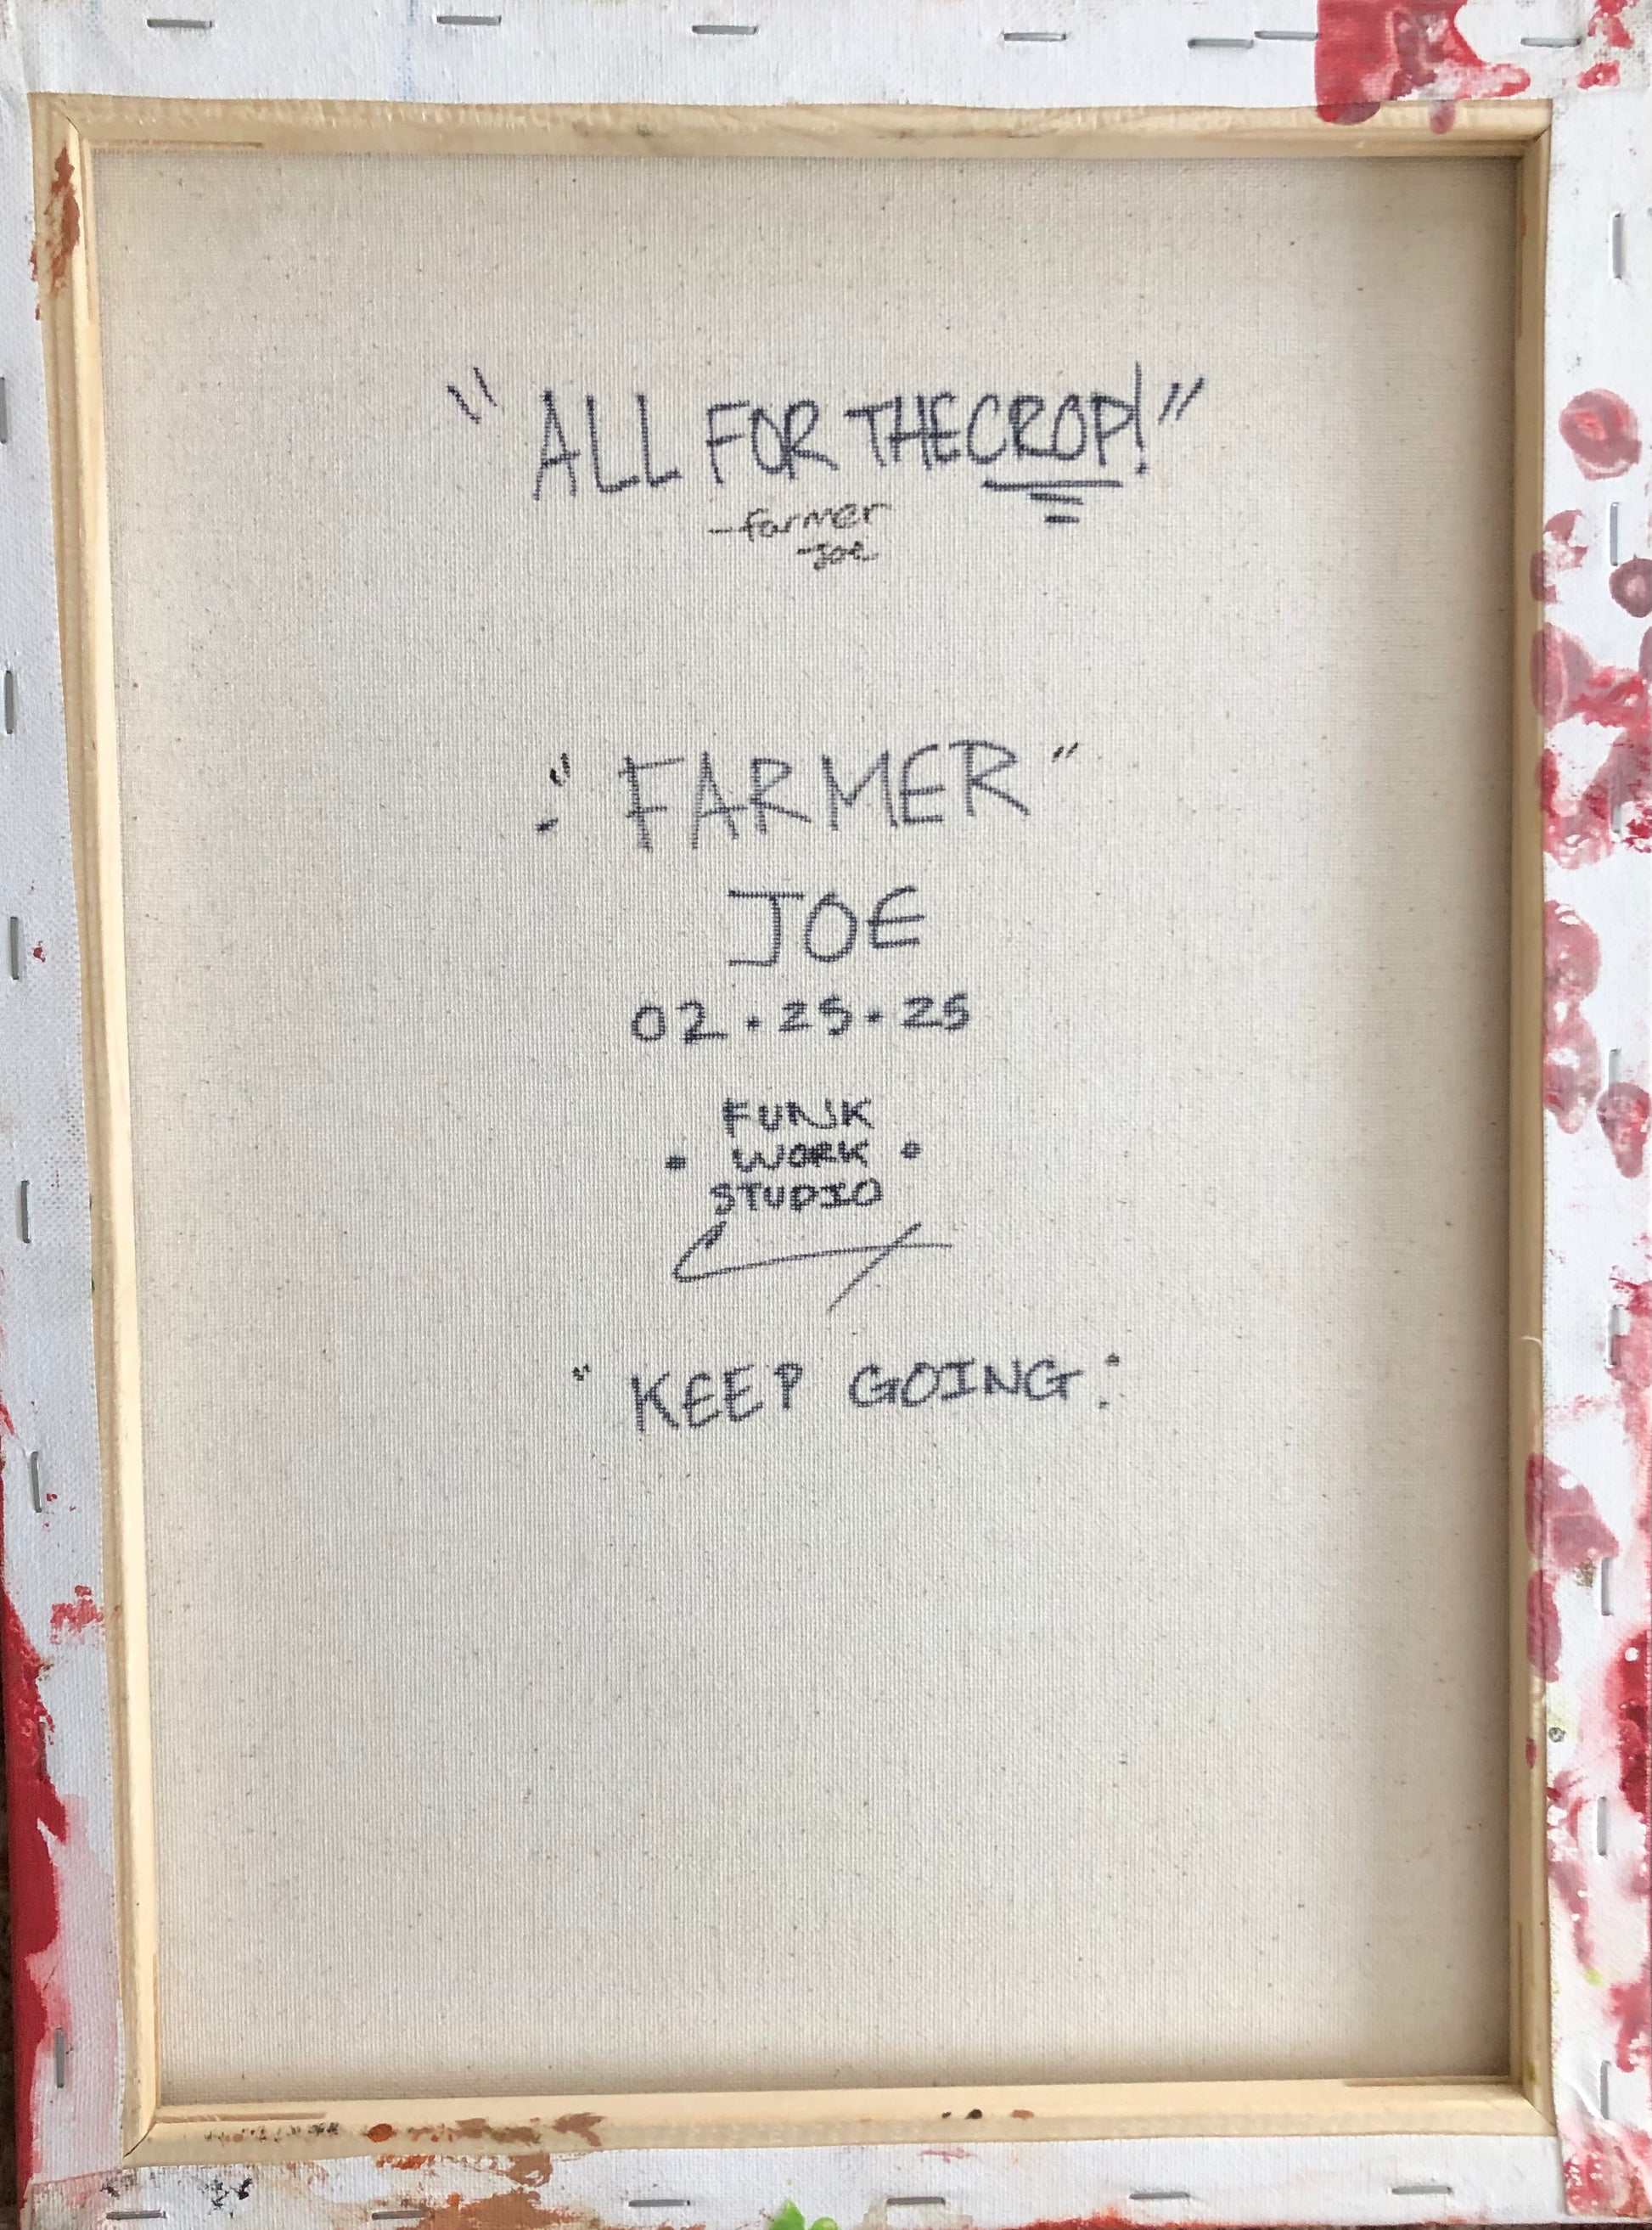 "ALL FOR THE CROP!"
-farmer
Joe
"FARMER"
JOE
02.25.25
FUNK
• WORK •
STUDIO
"KEEP GOING."